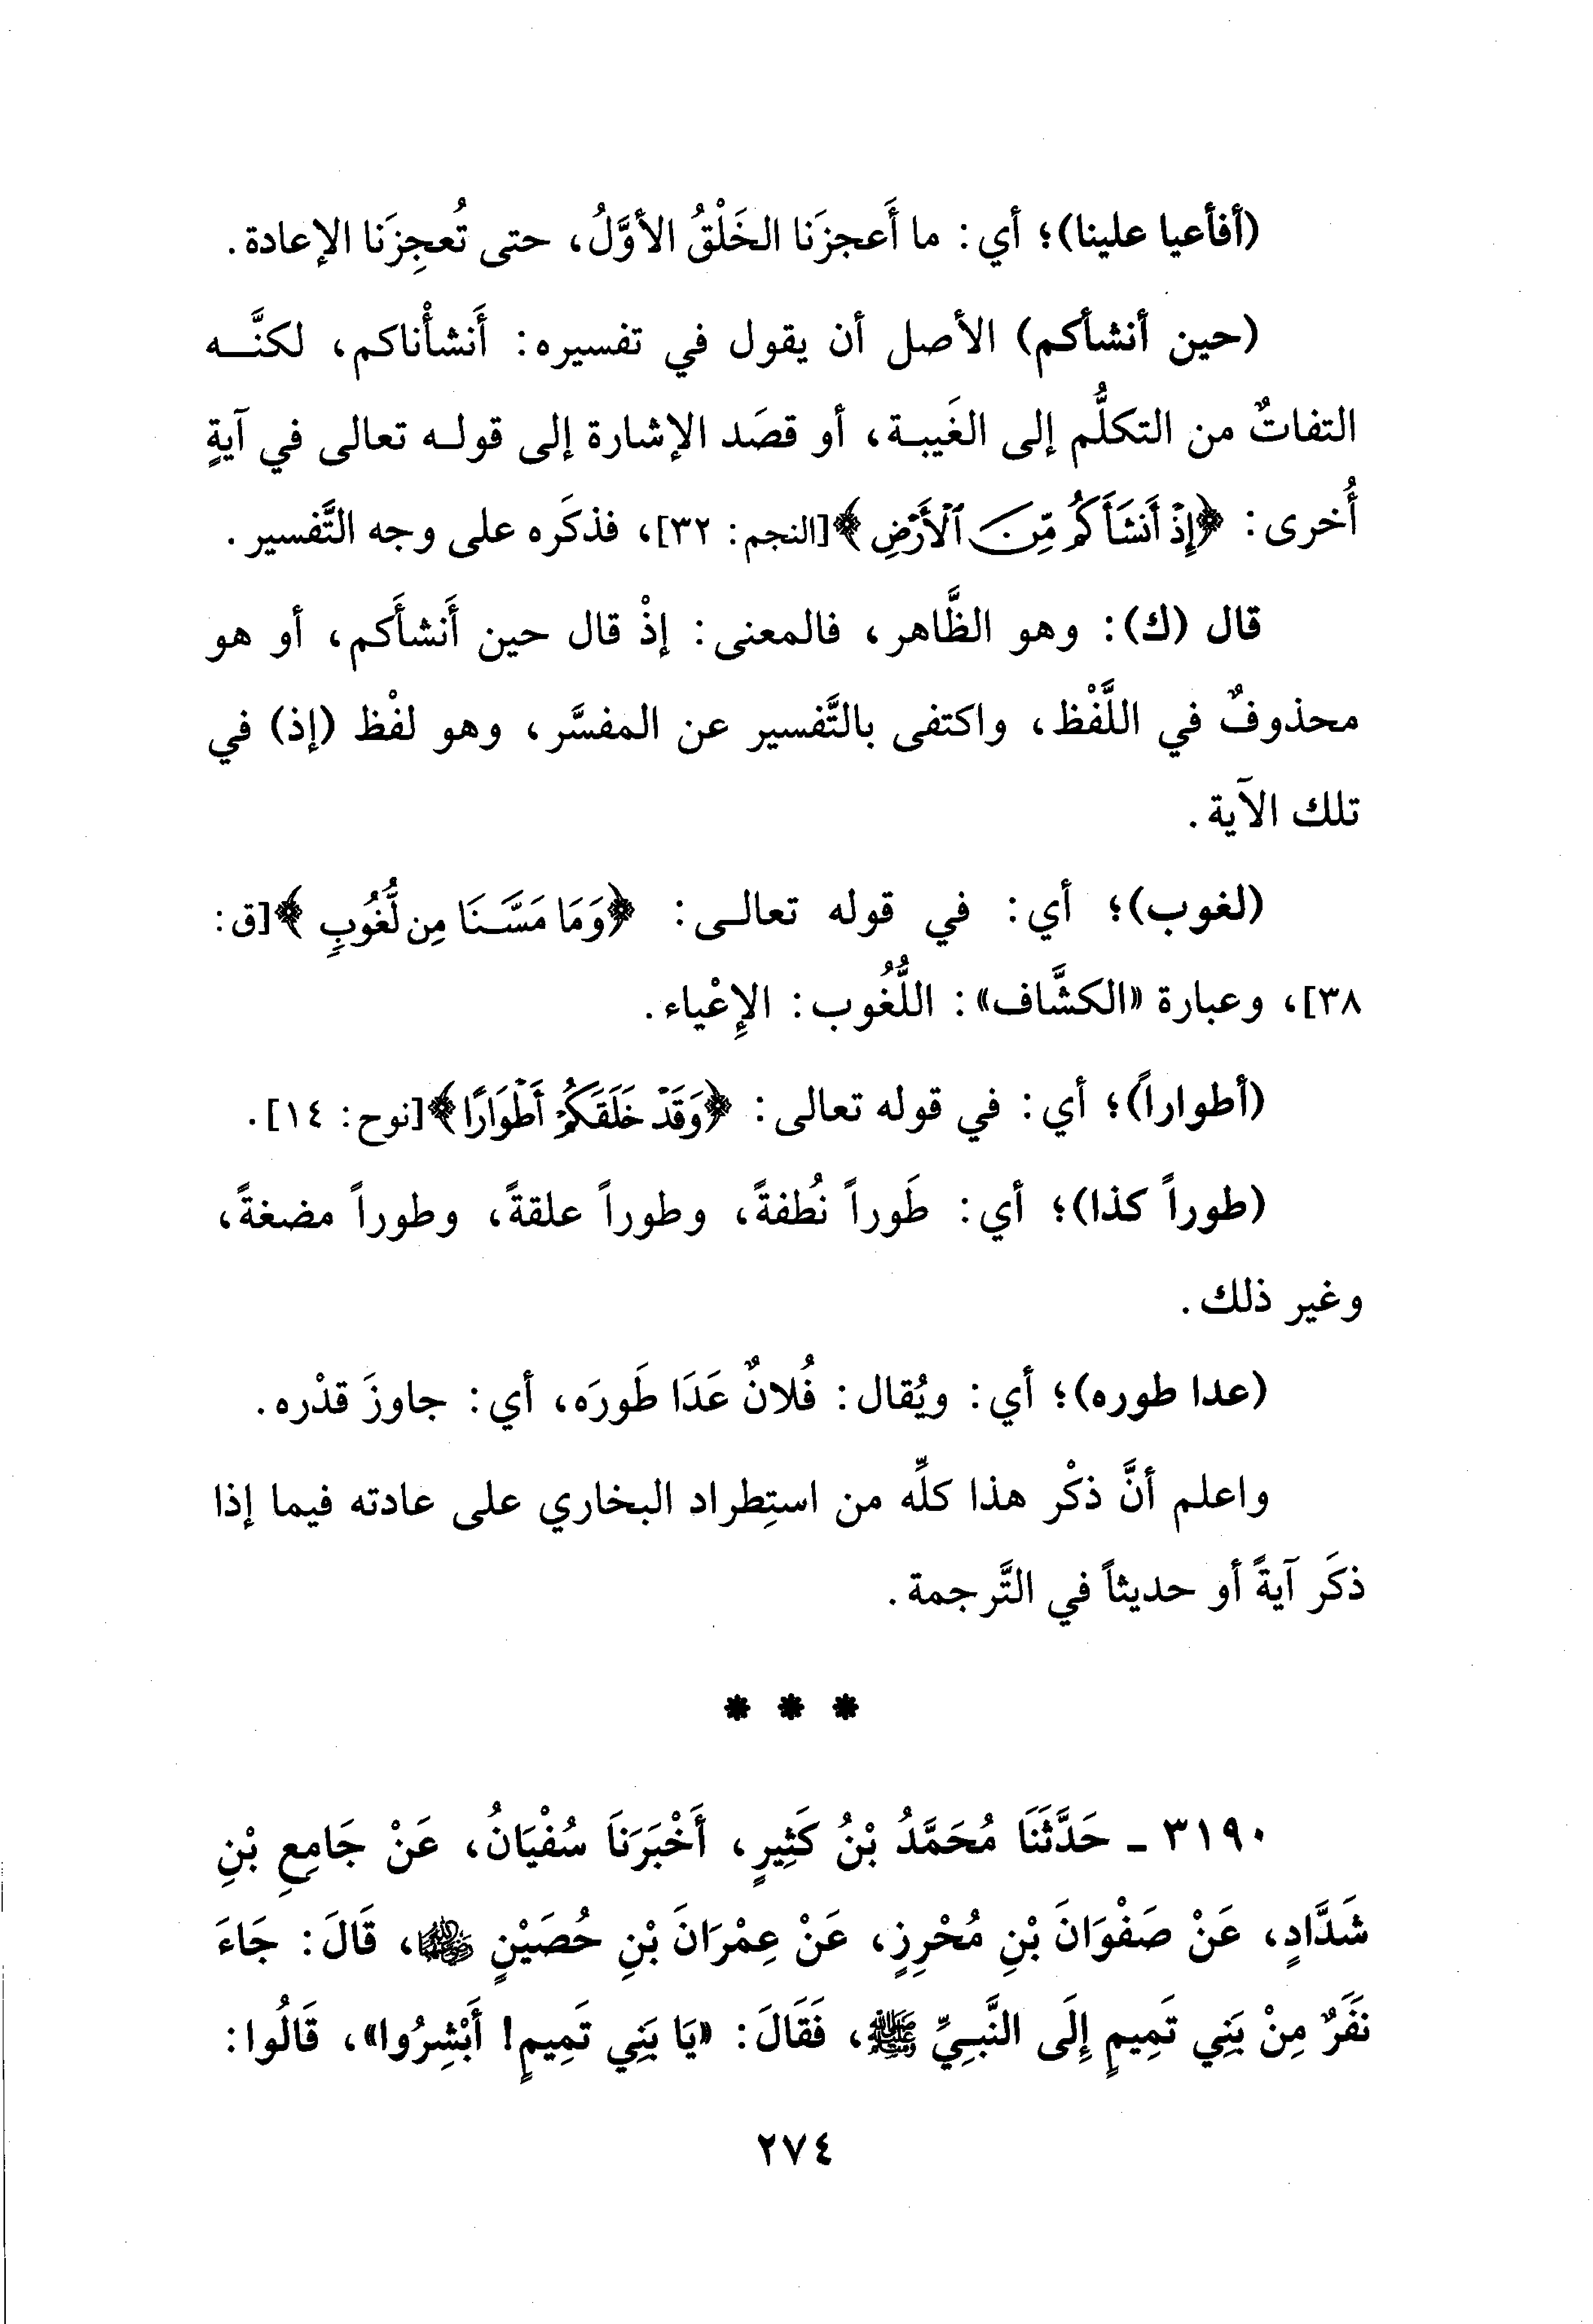 (أفأعيا علينا)؛ أي: ما أَعجزَنا الخَلْقُ الأوَّلُ، حتى تُعجِزَنا الإعادة.
(حين أنشأكم) الأصل أن يقول في تفسيره: أَنشأْناكم، لكنَّه
التفاتٌ من التكلُّم إلى الغَيبة، أو قصَد الإشارة إلى قوله تعالى في آيةٍ
أُخرى: ﴿إِذْ أَنشَأَكُم مِّنَ ٱلْأَرْضِ﴾ [النجم: ٣٢]، فذكَره على وجه التَّفسير.
قال (ك): وهو الظَّاهر، فالمعنى: إذْ قال حين أَنشأَكم، أو هو
محذوفٌ في اللَّفْظ، واكتفى بالتَّفسير عن المفسَّر، وهو لفْظ (إذ) في
تلك الآية.
(لغوب)؛ أي: في قوله تعالى: ﴿وَمَا مَسَّنَا مِن لُّغُوبٍ﴾ [ق:
٣٨]، وعبارة «الكشَّاف»: اللُّغُوب: الإِعْياء.
(أطواراً)؛ أي: في قوله تعالى: ﴿وَقَدْ خَلَقَكُمْ أَطْوَارًا﴾ [نوح: ١٤].
(طوراً كذا)؛ أي: طَوراً نُطفةً، وطوراً علقةً، وطوراً مضغةً،
وغير ذلك.
(عدا طوره)؛ أي: ويُقال: فُلانٌ عَدَا طَورَه، أي: جاوزَ قدْره.
واعلم أنَّ ذكْر هذا كلِّه من استِطراد البخاري على عادته فيما إذا
ذكَر آيةً أو حديثاً في التَّرجمة.
* * *
٣١٩٠ - حَدَّثَنَا مُحَمَّدُ بْنُ كَثِيرٍ، أَخْبَرَنَا سُفْيَانُ، عَنْ جَامِعِ بْنِ
شَدَّادٍ، عَنْ صَفْوَانَ بْنِ مُحْرِزٍ، عَنْ عِمْرَانَ بْنِ حُصَيْنٍ ﵁، قَالَ: جَاءَ
نَفَرٌ مِنْ بَنِي تَمِيمٍ إِلَى النَّبِيِّ ﷺ، فَقَالَ: «يَا بَنِي تَمِيمٍ! أَبْشِرُوا»، قَالُوا:
٢٧٤